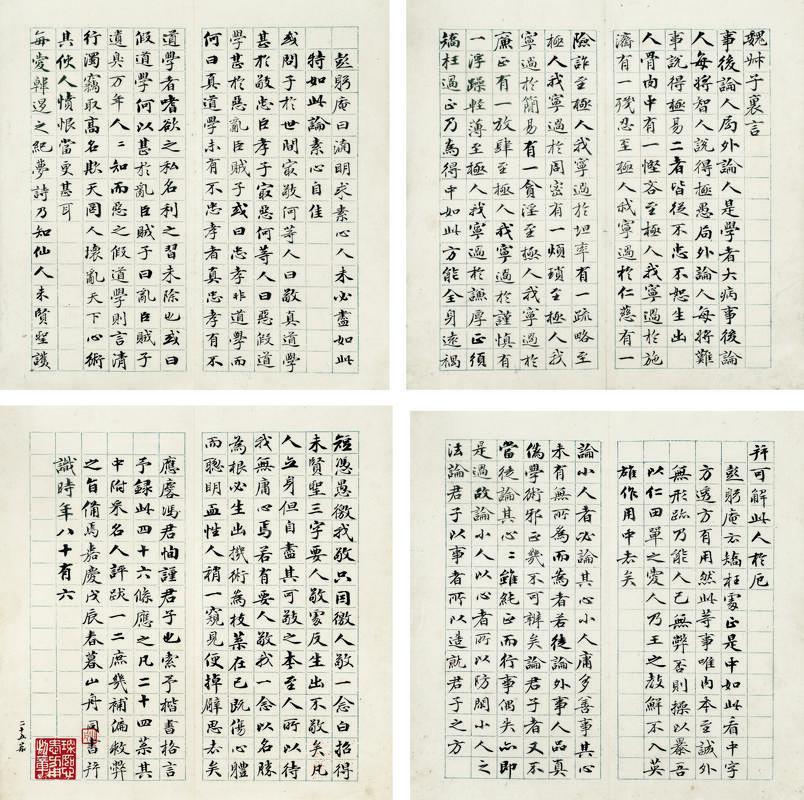 魏叔子裏言
事後論人局外論人是學者大病事後論
人每將智人說得極愚局外論人每將難
事說得極易二者皆從不忠不恕生出
人骨肉中有一慳吝至極人我寧過於施
濟有一殘忍至極人我寧過於仁慈有一
險詐至極人我寧過於坦率有一疏略至
極人我寧過於周密有一煩瑣至極人我
寧過於簡易有一貪淫至極人我寧過於
廉正有一放肆至極人我寧過於謹慎有
一浮躁輕薄至極人我寧過於謙厚正須
矯枉過正乃為得中如此方能全身遠禍
并可解此人於厄
彭躬庵云矯枉處正是中如此看中字
方透方有用然此等事唯內本至誠外
無形跡乃能人己無弊否則操以暴吾
以仁田單之愛人乃王之教解不入英
雄作用中去矣
論小人者必論其心小人庸多善事其心
未有無所為而為者若徒論外事人品真
偽學術邪正幾不可辨矣論君子者又不
當徒論其心〻雖純正而行事偶失亦即
是過故論小人以心者所以防閑小人之
法論君子以事者所以造就君子之方
彭躬庵曰淵明求素心人未必盡如此
特如此論素心自佳
或問子於世間最敬何等人曰敬真道學
甚於敬忠臣孝子最惡何等人曰惡假道
學甚於惡亂臣賊子或曰忠孝非道學而
何曰真道學未有不忠孝者真忠孝有不
道學者嗜欲之私名利之習未除也或曰
假道學何以甚於亂臣賊子曰亂臣賊子
遺臭万年人〻知而惡之假道學則言清
行濁竊取高名欺天罔人壞亂天下心術
其伙人憤恨當更甚耳
每愛韓退之紀夢詩乃知仙人未賢聖護
短憑愚徼我敬只因徼人敬一念白招得
未賢聖三字要人敬處反生出不敬矣凡
人立身但自盡其可敬之本至人所以待
我無庸心焉若有要人敬我一念以名勝
為根必生出機術為枝葉在己既傷心體
而聰明血性人稍一窺見便掉臂思去矣
應麐馮君恂謹君子也索予楷書格言
予錄此四十六條應之凡二十四葉其
中附采名人評跋一二庶幾補偏救弊
之旨備焉嘉慶戊辰春暮山舟同書并
識時年八十有六